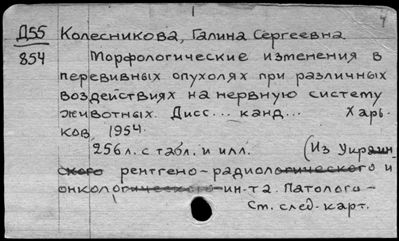 4
Д55 Колесникова, Галина Сергеевна
854 Морфологические изменения в
перевивных опухолях при различных
воздействиях на нервную систему
животных. Дисс... канд... Харь-
ков, 1954.
256 л. с табл. и илл. (Из Украин-
ского рентгено-радиологического и
онкологического ин-та. Патологи-
Ст. след. карт.